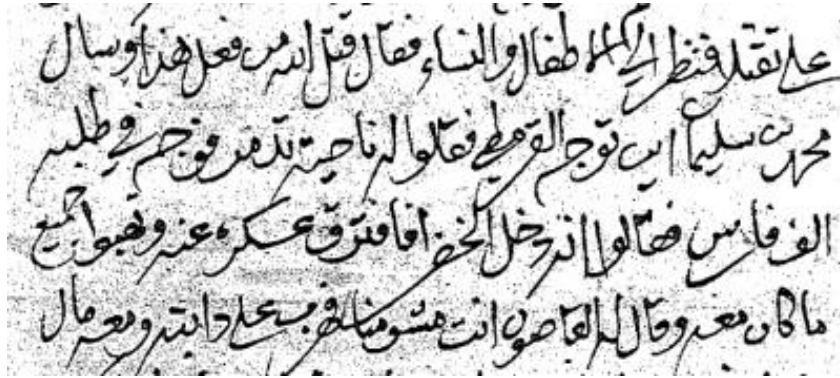 على تقتلا فنظر الى الاطفال والنساء فقال قتل الله من فعل هذا وسال
محمد بن سليمان اين توجه القرمطي فقالوا له ناحية تدمر فوجه في طلبه
الف فارس فقالوا انه دخل الخضرا فافترق عسكره عنه ونهبوا جميع
ما كان معه وقال له القاصون انت مشوم علينا فهرب على دابته ومعه مال